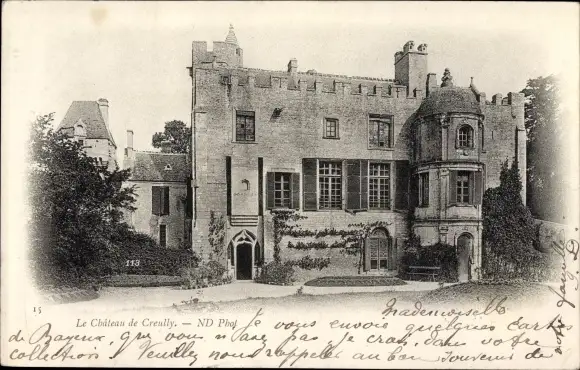 113
15
Le Château de Creully. — ND Phot
Mademoiselle
Je vous envoie quelques cartes
de Bayeux, que vous n'avez pas je crois, dans votre
collection. Veuillez nous rappeler au bon souvenir de
votre famille